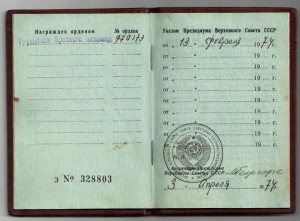 Награжден орденом
№ ордена
Трудового Красного Знамени
З № 328803
Указом Президиума Верховного Совета СССР
от „ 13 “ февраля 1974 г.
от „ “ 19 г.
от „ “ 19 г.
от „ “ 19 г.
от „ “ 19 г.
от „ “ 19 г.
от „ “ 19 г.
Президиума
Верховного Совета СССР
3 апреля 1974